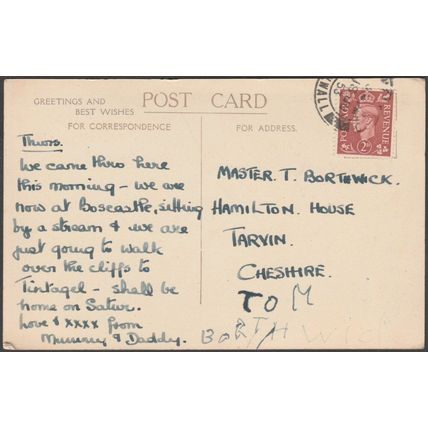 GREETINGS AND
BEST WISHES
POST CARD
FOR CORRESPONDENCE
FOR ADDRESS.
Thurs.
We came thro here
this morning - we are
now at Boscastle, sitting
by a stream & we are
just going to walk
over the cliffs to
Tintagel - shall be
home on Satur.
Love & xxxx from
Mummy & Daddy.
POSTAGE
REVENUE
2D
MASTER. T. BORTHWICK.
HAMILTON. HOUSE
TARVIN.
CHESHIRE.
TOM
BORTHWICK